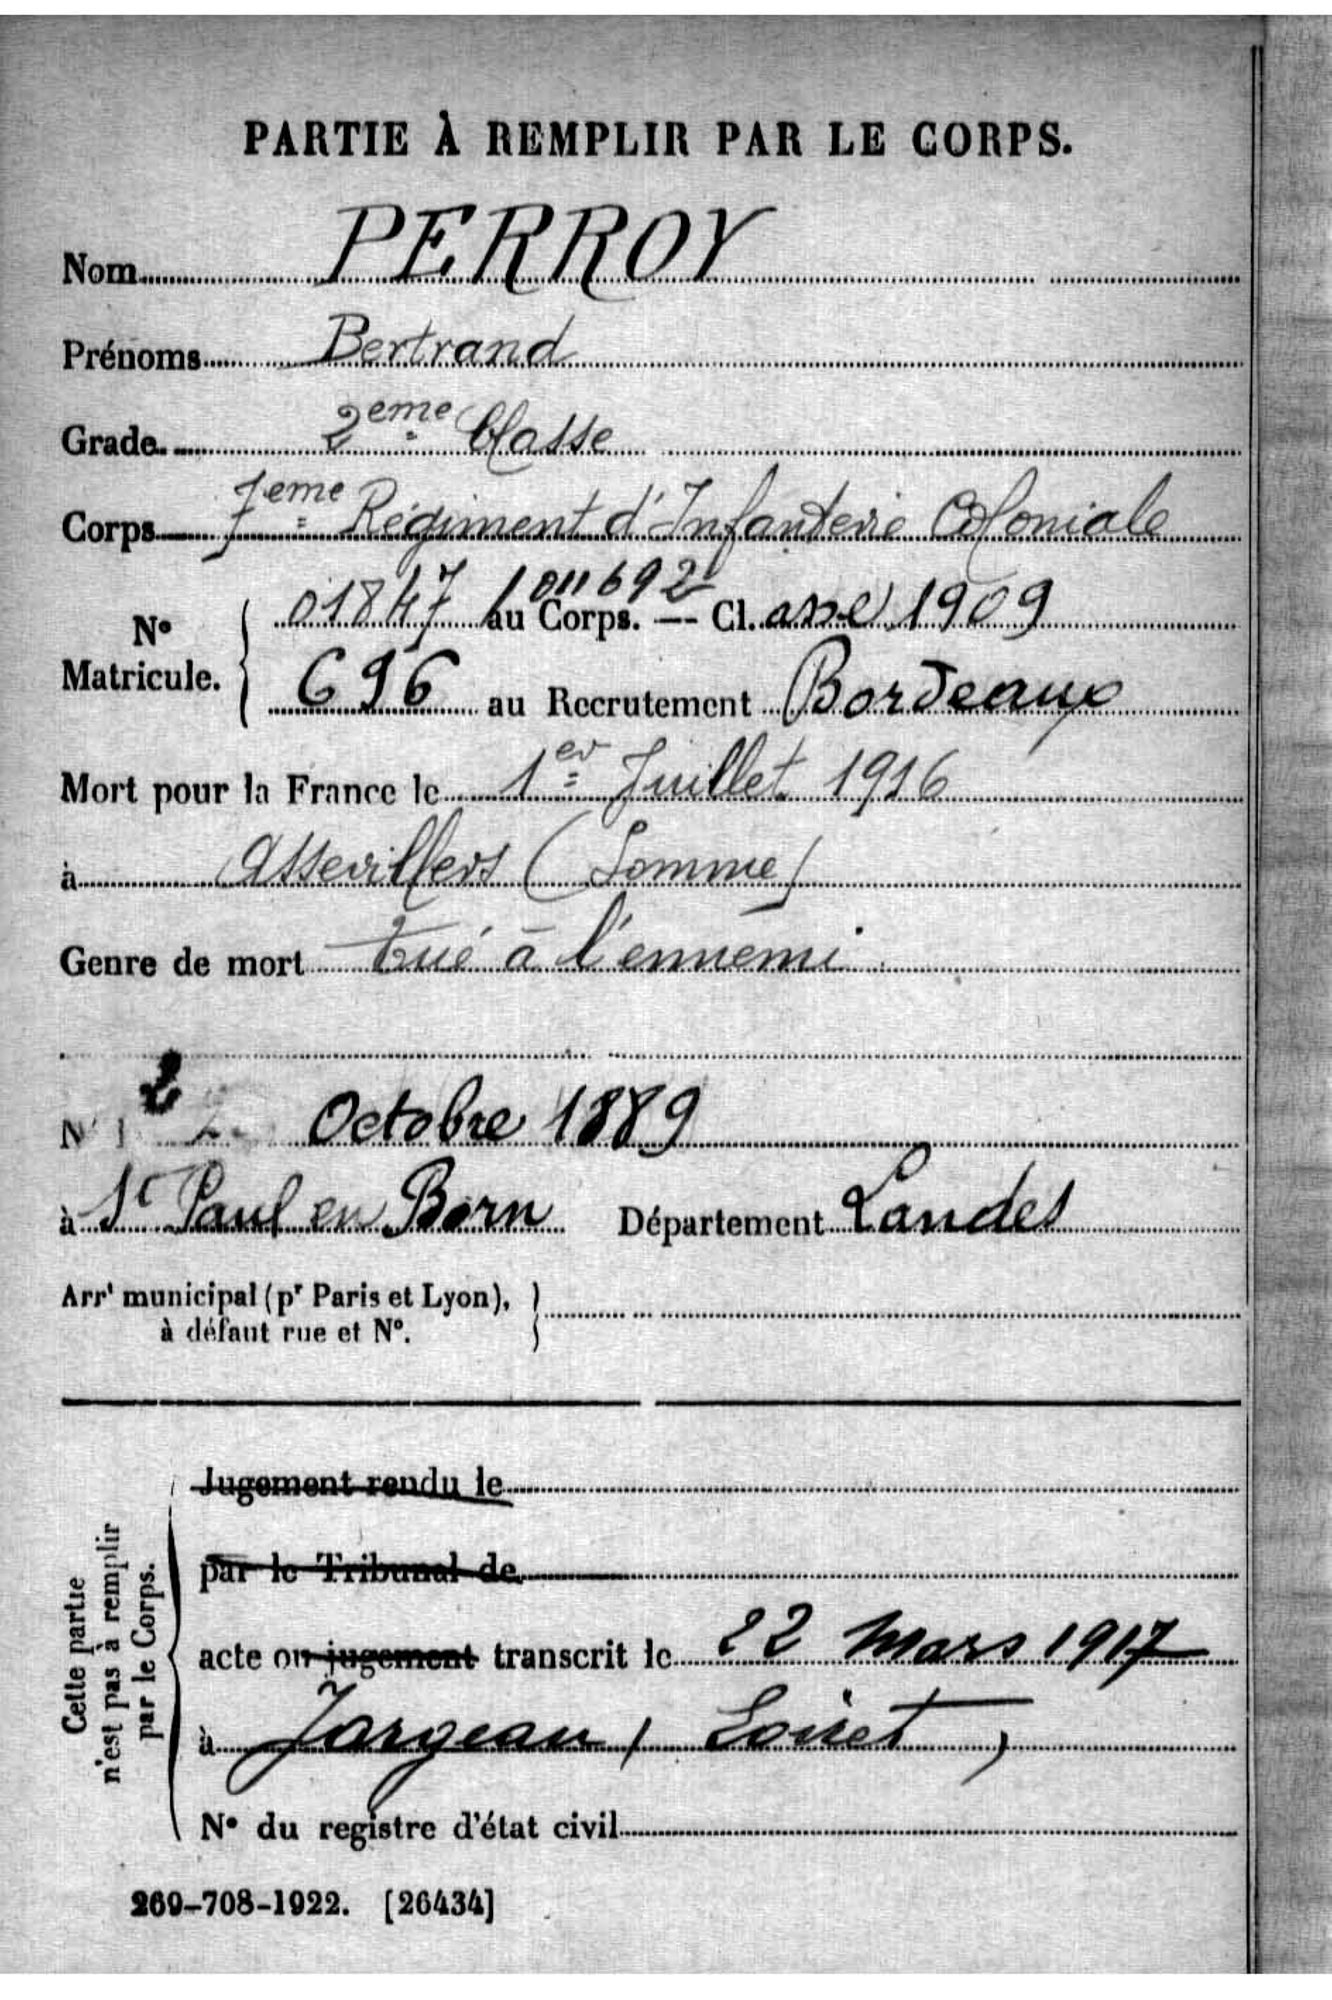 PARTIE À REMPLIR PAR LE CORPS.
Nom PERROY
Prénoms Bertrand
Grade 2eme Classe
Corps 7eme Régiment d'Infanterie Coloniale
01847 1011692 au Corps. — Cl. asse 1909
N° Matricule.
696 au Recrutement Bordeaux
Mort pour la France le 1er Juillet 1916
à Assevillers (Somme)
Genre de mort tué à l'ennemi
N 2 Octobre 1889
à St Paul en Born Département Landes
Arrt municipal (pr Paris et Lyon),
à défaut rue et N°.
Cette partie
n'est pas à remplir
par le Corps.
Jugement rendu le
par le Tribunal de
acte ou jugement transcrit le 22 Mars 1917
à Jargeau (Loiret)
N° du registre d'état civil
269-708-1922. [26434]